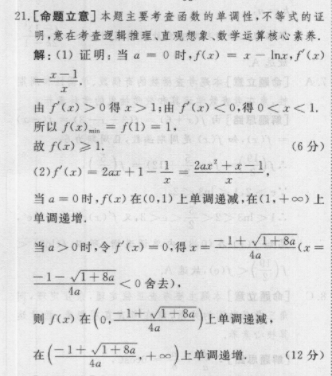 21.[命题立意]本题主要考查函数的单调性,不等式的证
明,意在考查逻辑推理、直观想象、数学运算核心素养.
解:(1) 证明:当 a = 0 时,f(x) = x − lnx,f′(x)
= \frac{x−1}{x}.
由 f′(x) > 0 得 x > 1;由 f′(x) < 0,得 0 < x < 1.
所以 f(x)min = f(1) = 1.
故 f(x) ⩾ 1. (6 分)
(2)f′(x) = 2ax + 1 − \frac{1}{x} = \frac{2ax² + x − 1}{x},
当 a = 0 时,f(x) 在(0,1) 上单调递减,在(1,+∞) 上
单调递增.
当 a > 0 时,令 f′(x) = 0,得 x = \frac{−1 + √(1+8a)}{4a} (x =
\frac{−1 − √(1+8a)}{4a} < 0 舍去),
则 f(x) 在 (0, \frac{−1 + √(1+8a)}{4a}) 上单调递减,
在 (\frac{−1 + √(1+8a)}{4a}, +∞) 上单调递增. (12 分)